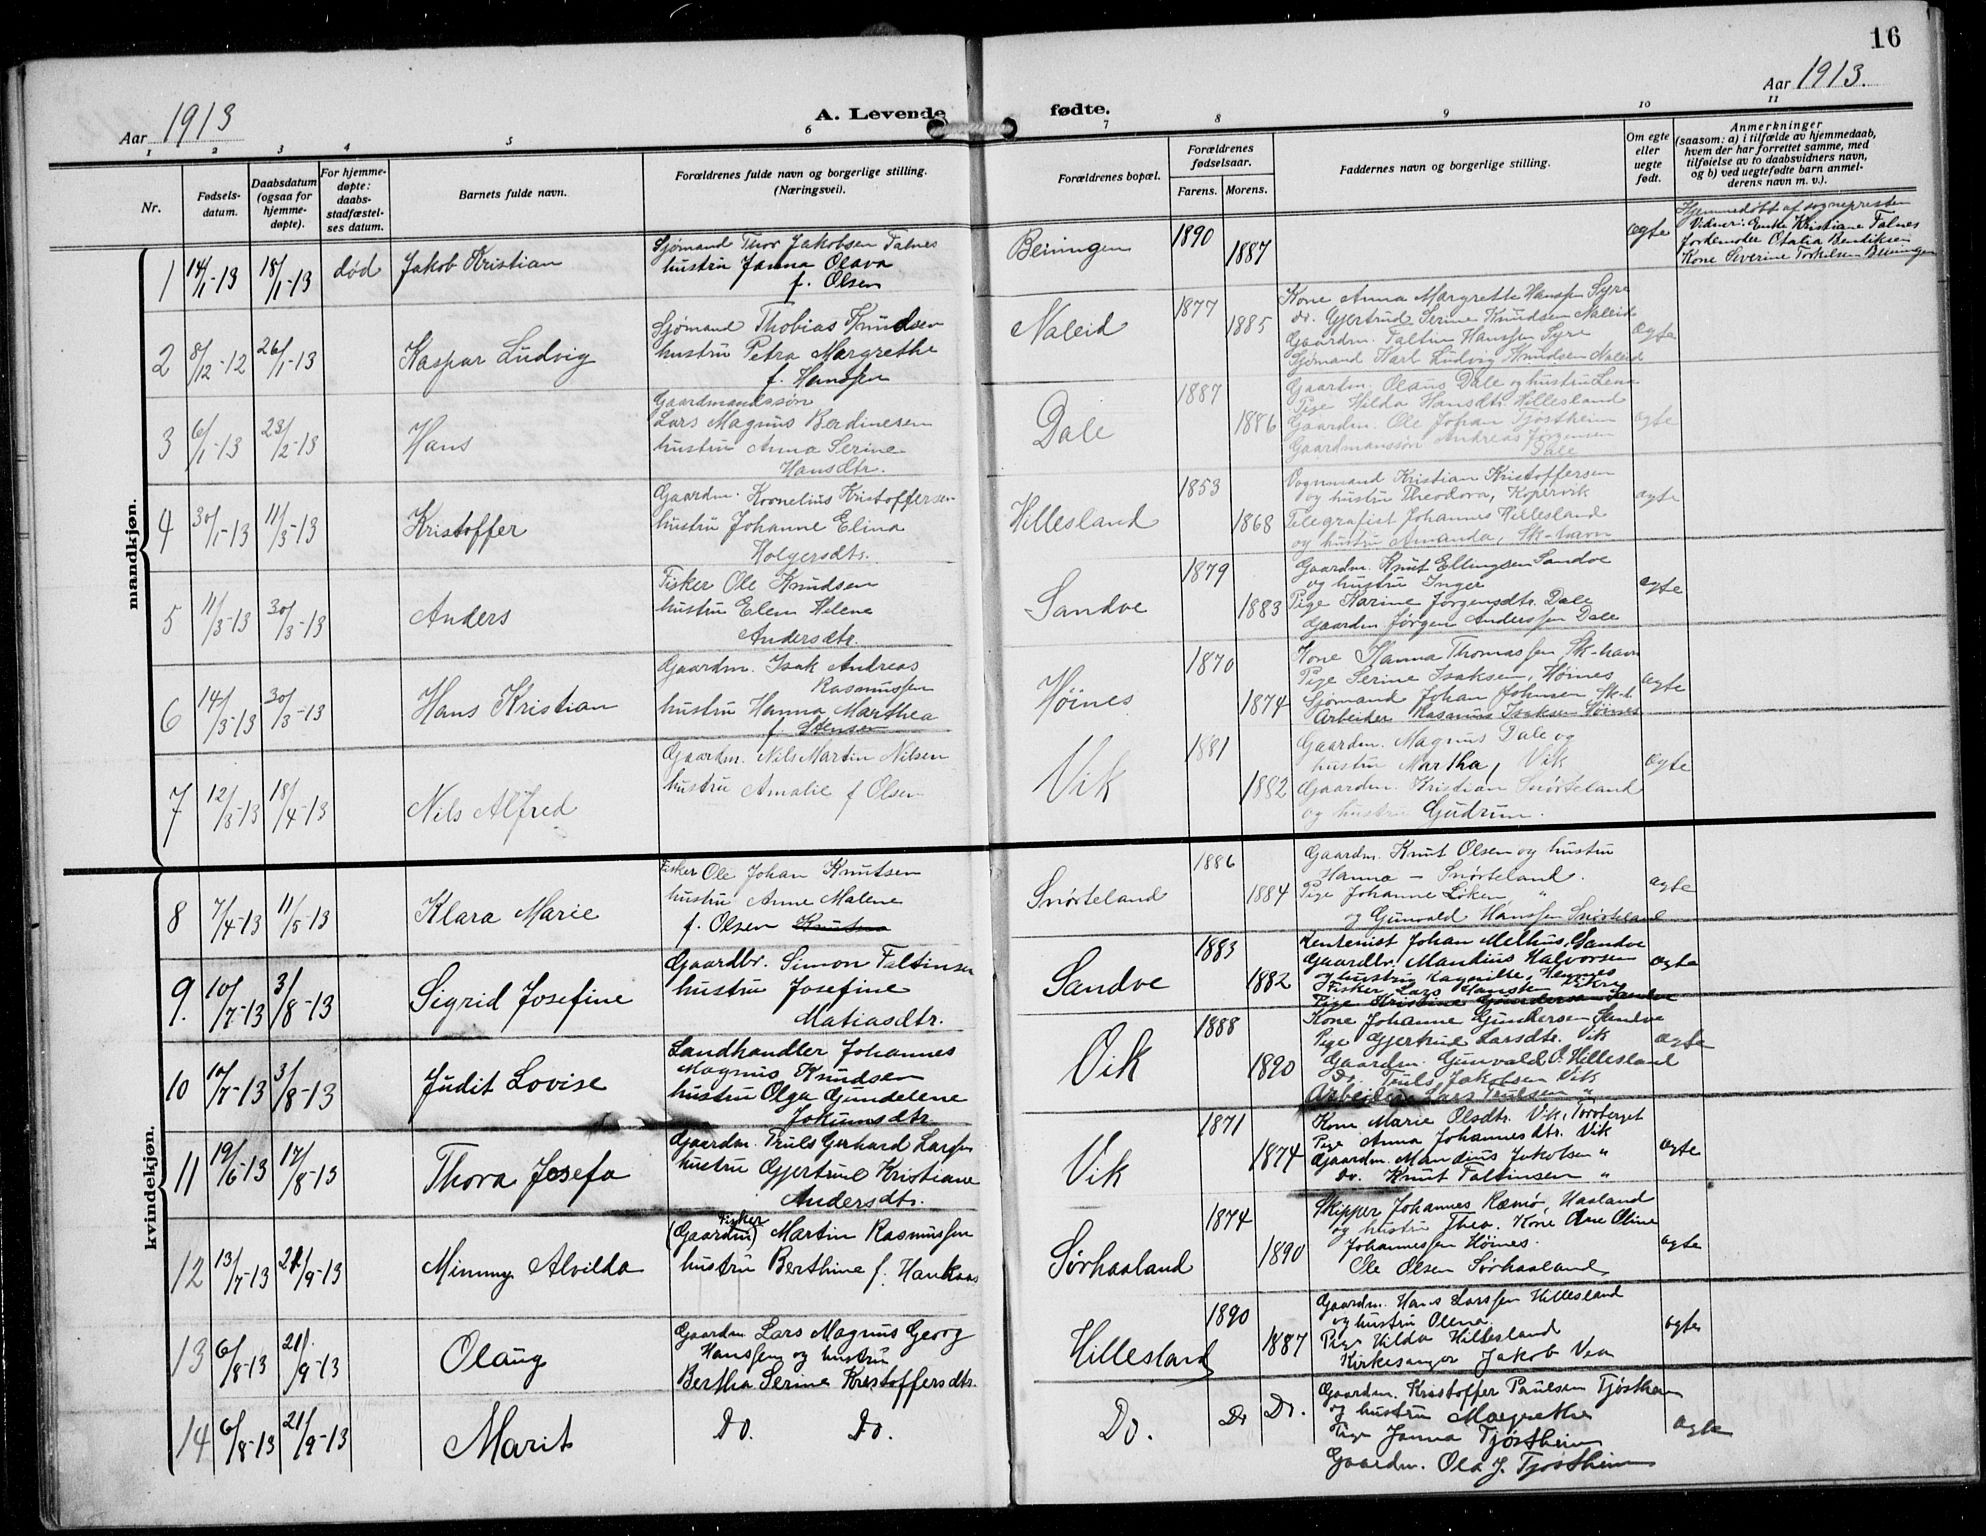 16
Aar 1913
A. Levende fødte.
Aar 1913.
1 2 3 4 5 6 7 8 9 10 11
Nr.
Fødsels-
datum.
Daabsdatum
(ogsaa for
hjemme-
døpte).
For hjemme-
døpte:
daabs-
stadfæstel-
ses datum.
Barnets fulde navn.
Forældrenes fulde navn og borgerlige stilling.
(Næringsvei).
Forældrenes bopæl.
Forældrenes
fødselsaar.
Farens. Morens.
Faddernes navn og borgerlige stilling.
Om egte
eller
uegte
født.
Anmerkninger
(saasom: a) i tilfælde av hjemmedaab,
hvem der har forrettet samme, med
tilføielse av to daabsvidners navn,
og b) ved uegtefødte barn anmel-
derens navn m. v.).
mandkjøn.
1 14/1-13 18/1-13 død Jakob Kristian
Sjømand Thor Jakobsen Falnes
hustru Janna Olava
f. Olsen
Beiningen 1890 1887 ægte
Hjemmedøbt af sognepresten
Vidner: Enke Kristiane Falnes
Jordemoder Otalia Bendiksen
Kone Severine Torkelsen Beiningen
2 8/12-12 26/1-13 Kaspar Ludvig
Sjømand Thobias Knudsen
hustru Petra Margrethe
f. Hanssen
Naleid 1877 1885
Kone Anna Margrethe Hanssen Syre
do. Gjertrud Serine Knudsen Naleid
Gaardm. Faltin Hanssen Syre
Sjømand Karl Ludvig Knudsen Naleid
ægte
3 6/1-13 23/2-13 Hans
Gaardmandssøn
Lars Magnus Berdinesen
hustru Anna Serine
Hansdtr.
Dale 1887 1886
Gaardm. Olaus Dale og hustru Lena
Pige Hilda Hansdtr. Hillesland
Gaardm. Ole Johan Tjøstheim
Gaardmanssøn Andreas Jørgensen
Dale
ægte
4 30/1-13 11/3-13 Kristoffer
Gaardm. Kornelius Kristoffersen
hustru Johanne Elina
Holgersdtr.
Hillesland 1853 1868
Vognmand Kristian Kristoffersen
og hustru Theodora, Kopervik
Telegrafist Johannes Hillesland
og hustru Amanda, Sk-havn
ægte
5 11/3-13 30/3-13 Anders
Fisker Ole Knudsen
hustru Elen Helene
Andersdtr.
Sandve 1879 1883
Gaardm. Knut Ellingsen Sandve
og hustru Inger
Pige Karine Jørgensdtr. Dale
Gaardm Jørgen Anderssen Dale
ægte
6 14/3-13 30/3-13 Hans Kristian
Gaardm. Isak Andreas
Rasmussen
hustru Hanna Marthea
f. Stensen
Høines 1870 1874
Kone Hanna Thomassen Sk-havn
Pige Serine Isaksen, Høines
Sjømand Johan Johnsen, Sk-h
Arbeider Rasmus Isaksen Høines
ægte
7 12/3-13 18/4-13 Nils Alfred
Gaardm. Nils Martin Nilsen
hustru Amalie f Olsen
Vik 1881 1882
Gaardm. Magnus Dale og
hustru Martha, Vik
Gaardm. Kristian Snørteland
og hustru Gudrun.
ægte
kvindekjøn.
8 7/4-13 11/5-13 Klara Marie
Fisker Ole Johan Knutsen
hustru Anne Malene
f. Olsen
Snørteland 1886 1884
Gaardm. Knut Olsen og hustru
Hanna - Snørteland.
Pige Johanne Løken "
og Gunvald Hanssen Snørteland
ægte
9. 10/7-13 3/8-13 Sigrid Josefine
Gaardbr. Simon Faltinsen
hustru Josefine
Matiasdtr.
Sandve 1883 1882
Rentenist Johan Melhus, Sandve
Gaardbr. Mandius Halvorsen
og hustru Ragnilte, Høines
Fisker Lars Hansen
Pige Kristine Gundersen Sandve
ægte
10 10/7-13 3/8-13 Judit Lovise
Landhandler Johannes
Magnus Knudsen
hustru Olga Gundelene
Jokumsdtr
Vik 1888 1890
Kone Johanne Gundersen Sandve
Pige Gjertrud Larsdtr. Vik
Gaardm. Gunvald O. Hillesland
Do. Truls Jakobsen Vik
Arbeider Lars Trulsen "
ægte
11 19/6-13 17/8-13 Thora Josefa
Gaardm. Truls Gerhard Larsen
hustru Gjertrud Kristiane
Andersdtr.
Vik 1871 1874
Kone Marie Olsdtr. Vik, Torsberget
Pige Anna Johannesdtr. Vik
Gaardm. Mandius Jakobsen "
Do. Knut Faltinsen "
ægte
12 13/7-13 21/9-13 Mimmy Alvilda
Fisker
(Gaardm) Martin Rasmussen
hustru Berthine f. Hankaas
Sørhaaland 1874 1890
Skipper Johannes Ramø, Haaland
og hustru Thea. Kone Ane Oline
Johannessen Høines.
Ole Olsen Sørhaaland
ægte
13 6/8-13 21/9-13 Olaug
Gaardm Lars Magnus Georg
Hanssen og hustru
Bertha Serine Kristoffersdtr.
Hillesland 1890 1887
Gaardm. Hans Larssen Hillesland
og hustru Olena.
Pige Hilda Hillesland
Kirkesanger Jakob Vea
ægte
14 6/8-13 21/9-13 Marit
Do. Do.
Do. Do Do.
Gaardm. Kristoffer Paulsen Tjøsthem
og hustru Margrethe
Pige Janna Tjøstheim
Gaardm. Ola J. Tjøstheim
ægte